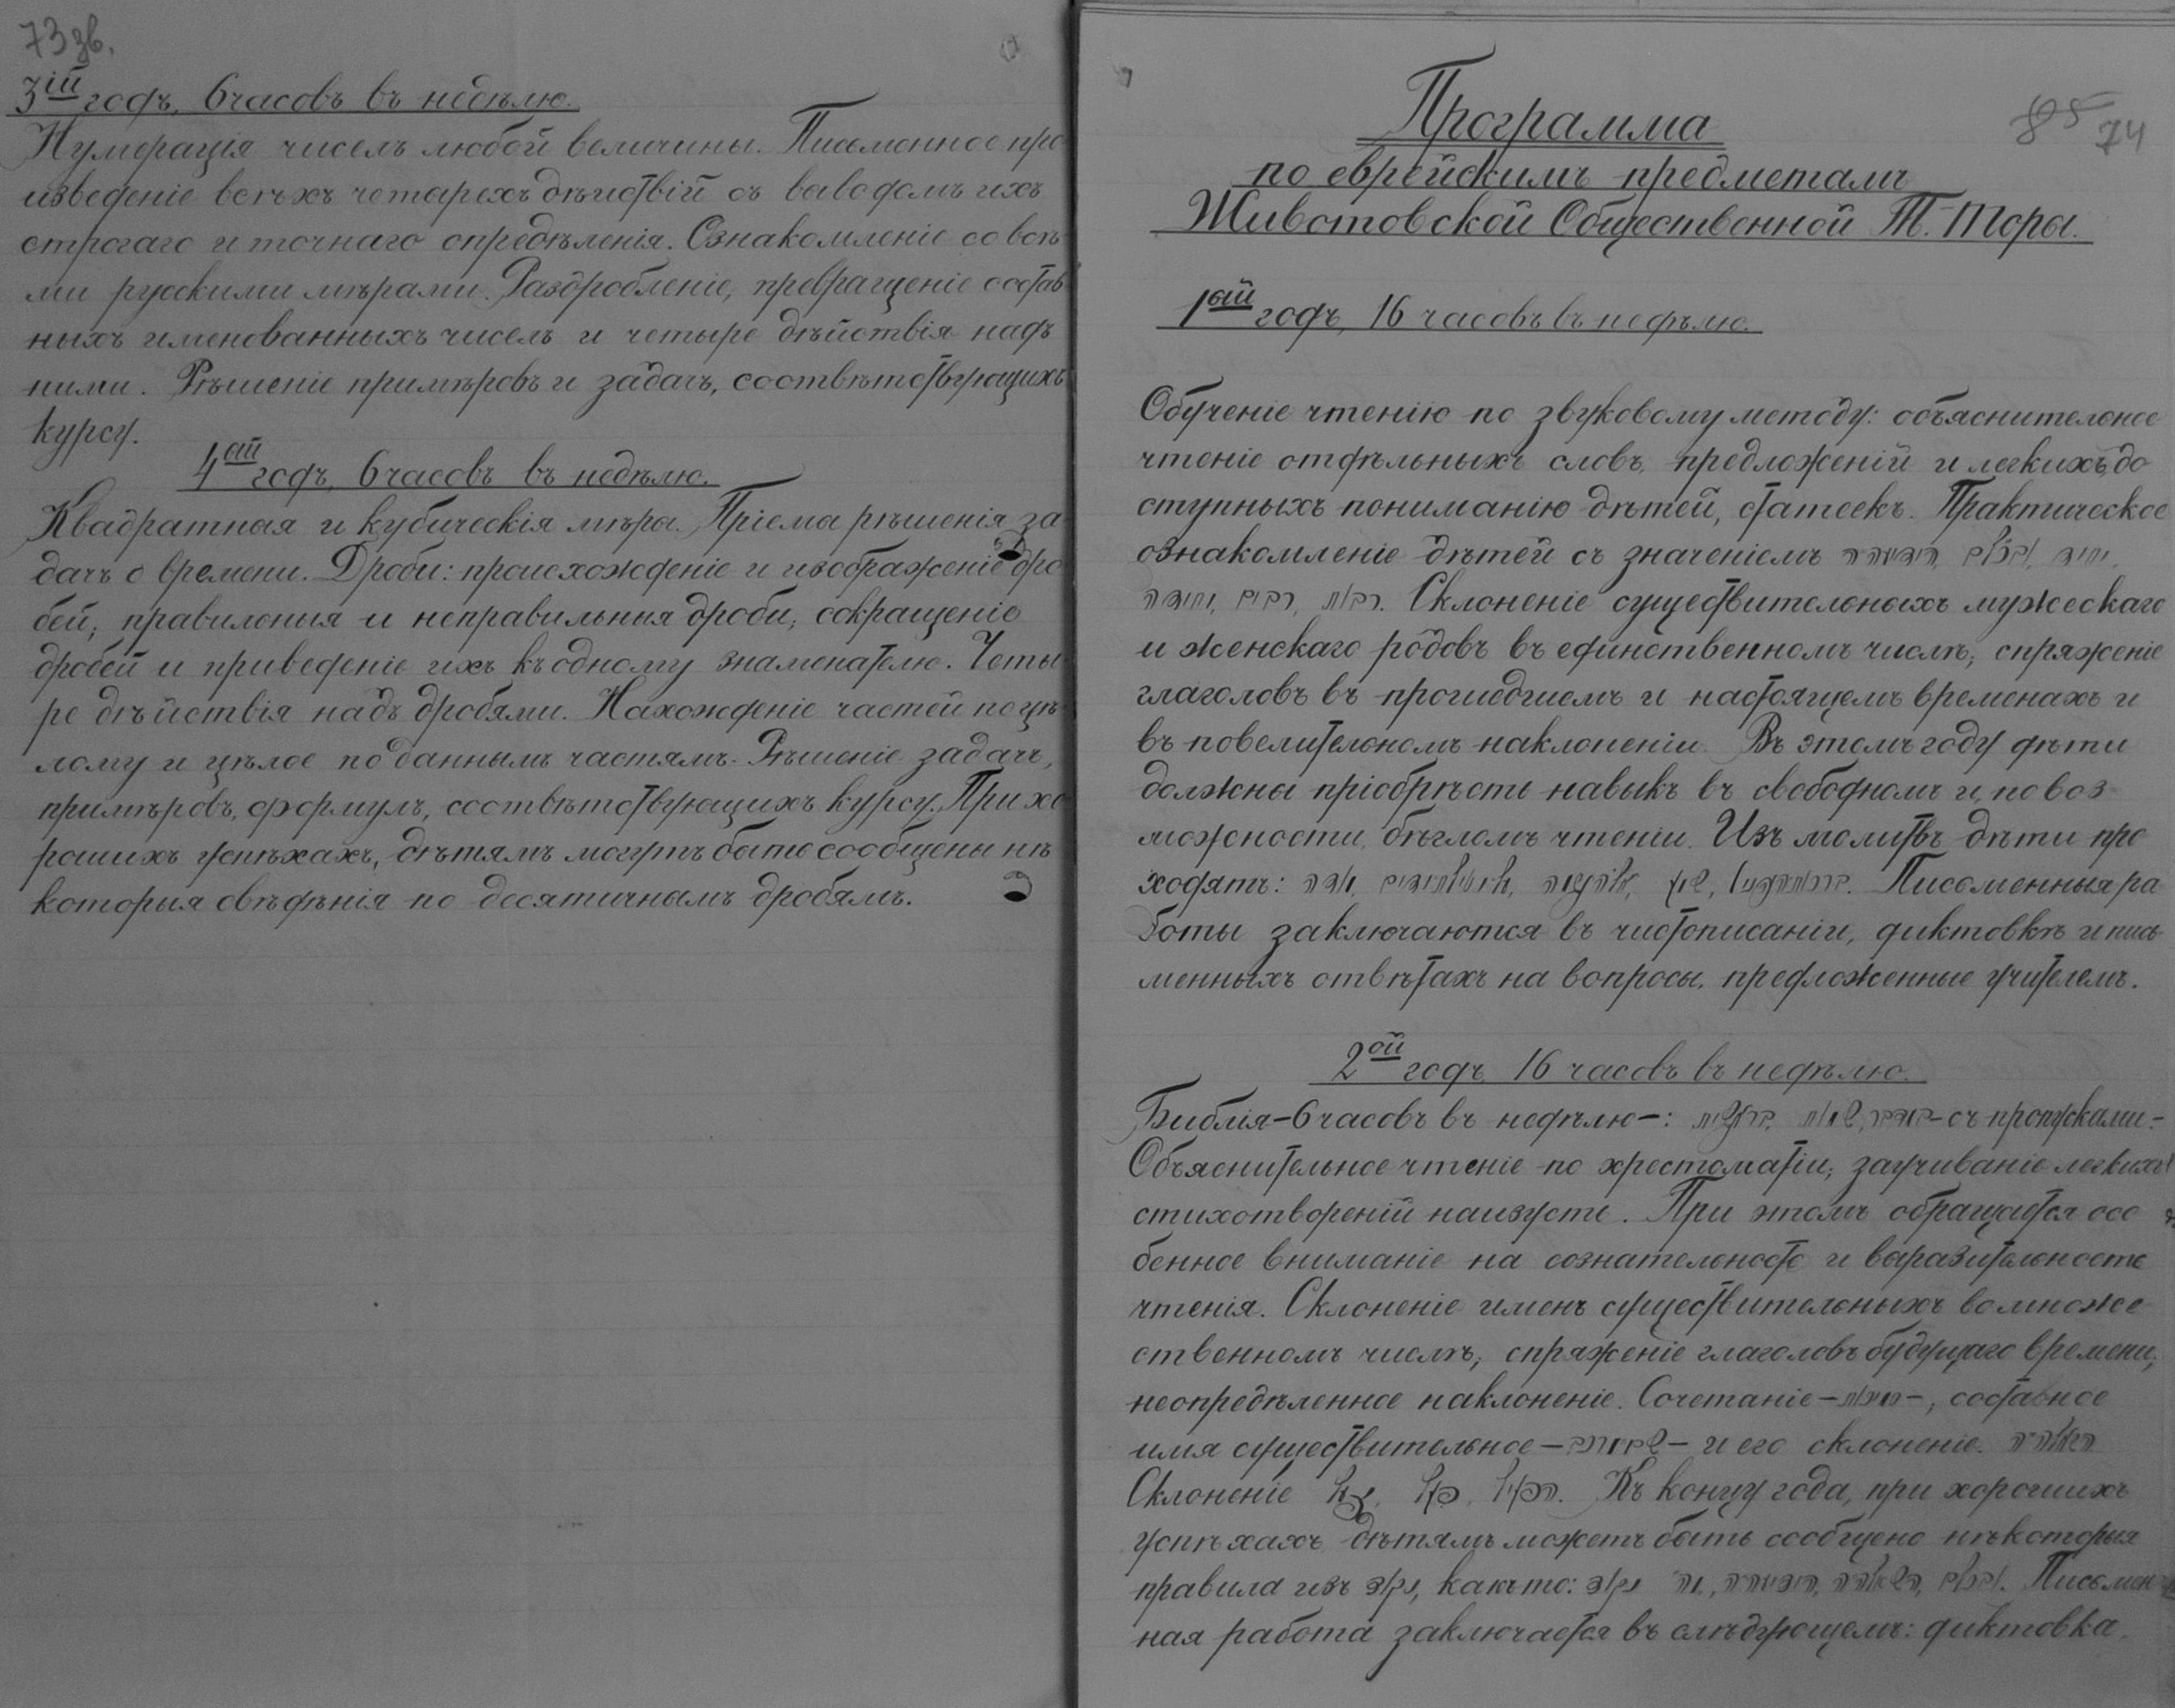 73 зв.
3ій годъ, 6 часовъ въ недѣлю.
Нумерація чиселъ любой величины. Письменное про
изведеніе всѣхъ четырехъ дѣйствій съ выводомъ ихъ
строгаго и точнаго опредѣленія. Ознакомленіе со всѣ
ми русскими мѣрами. Раздробленіе, превращеніе состав
ныхъ именованныхъ чиселъ и четыре дѣйствія надъ
ними. Рѣшеніе примѣровъ и задачъ, соотвѣтствующихъ
курсу.
4ый годъ, 6 часовъ въ недѣлю.
Квадратная и кубическія мѣры. Пріемы рѣшенія за
дачъ о времени. Дроби: происхожденіе и изображеніе дро
бей; правильныя и неправильныя дроби; сокращеніе
дробей и приведеніе ихъ къ одному знаменателю. Четы
ре дѣйствія надъ дробями. Нахожденіе частей по цѣ
лому и цѣлое по даннымъ частямъ. Рѣшеніе задачъ,
примѣровъ, формулъ, соотвѣтствующихъ курсу. При хо
рошихъ успѣхахъ, дѣтямъ могутъ быть сообщены нѣ
которыя свѣдѣнія по десятичнымъ дробямъ.
85 74
Программа
по еврейскимъ предметамъ
Животовской Общественной Т.-Торы.
1ый годъ, 16 часовъ въ недѣлю.
Обученіе чтенію по звуковому методу: объяснительное
чтеніе отдѣльныхъ словъ, предложеній и легкихъ, до
ступныхъ пониманію дѣтей, статеекъ. Практическое
ознакомленіе дѣтей съ значеніемъ
יחידה, רבים, רבות. Склоненіе существительныхъ мужескаго
и женскаго родовъ въ единственномъ числѣ; спряженіе
глаголовъ въ прошедшемъ и настоящемъ временахъ и
въ повелительномъ наклоненіи. Въ этомъ году дѣти
должны пріобрѣсть навыкъ въ свободномъ и, по воз
можности, бѣгломъ чтеніи. Изъ молитвъ дѣти про
ходятъ: Письменныя ра
боты заключаются въ чистописаніи, диктовкѣ и пись
менныхъ отвѣтахъ на вопросы, предложенные учителемъ.
2ой годъ 16 часовъ въ недѣлю.
Библія – 6 часовъ въ недѣлю –: בראשית, שמות, במדבר – съ пропусками. –
Объяснительное чтеніе по хрестоматіи; заучиваніе легкихъ
стихотвореній наизусть. При этомъ обращается осо
бенное вниманіе на сознательность и выразительность
чтенія. Склоненіе именъ существительныхъ во множе
ственномъ числѣ; спряженіе глаголовъ будущаго времени;
неопредѣленное наклоненіе. Сочетаніе – –, составное
имя существительное – – и его склоненіе.
Склоненіе Къ концу года, при хорошихъ
успѣхахъ дѣтямъ можетъ быть сообщено нѣкоторыя
правила изъ נקוד, какъ то: Письмен
ная работа заключается въ слѣдующемъ: диктовка.